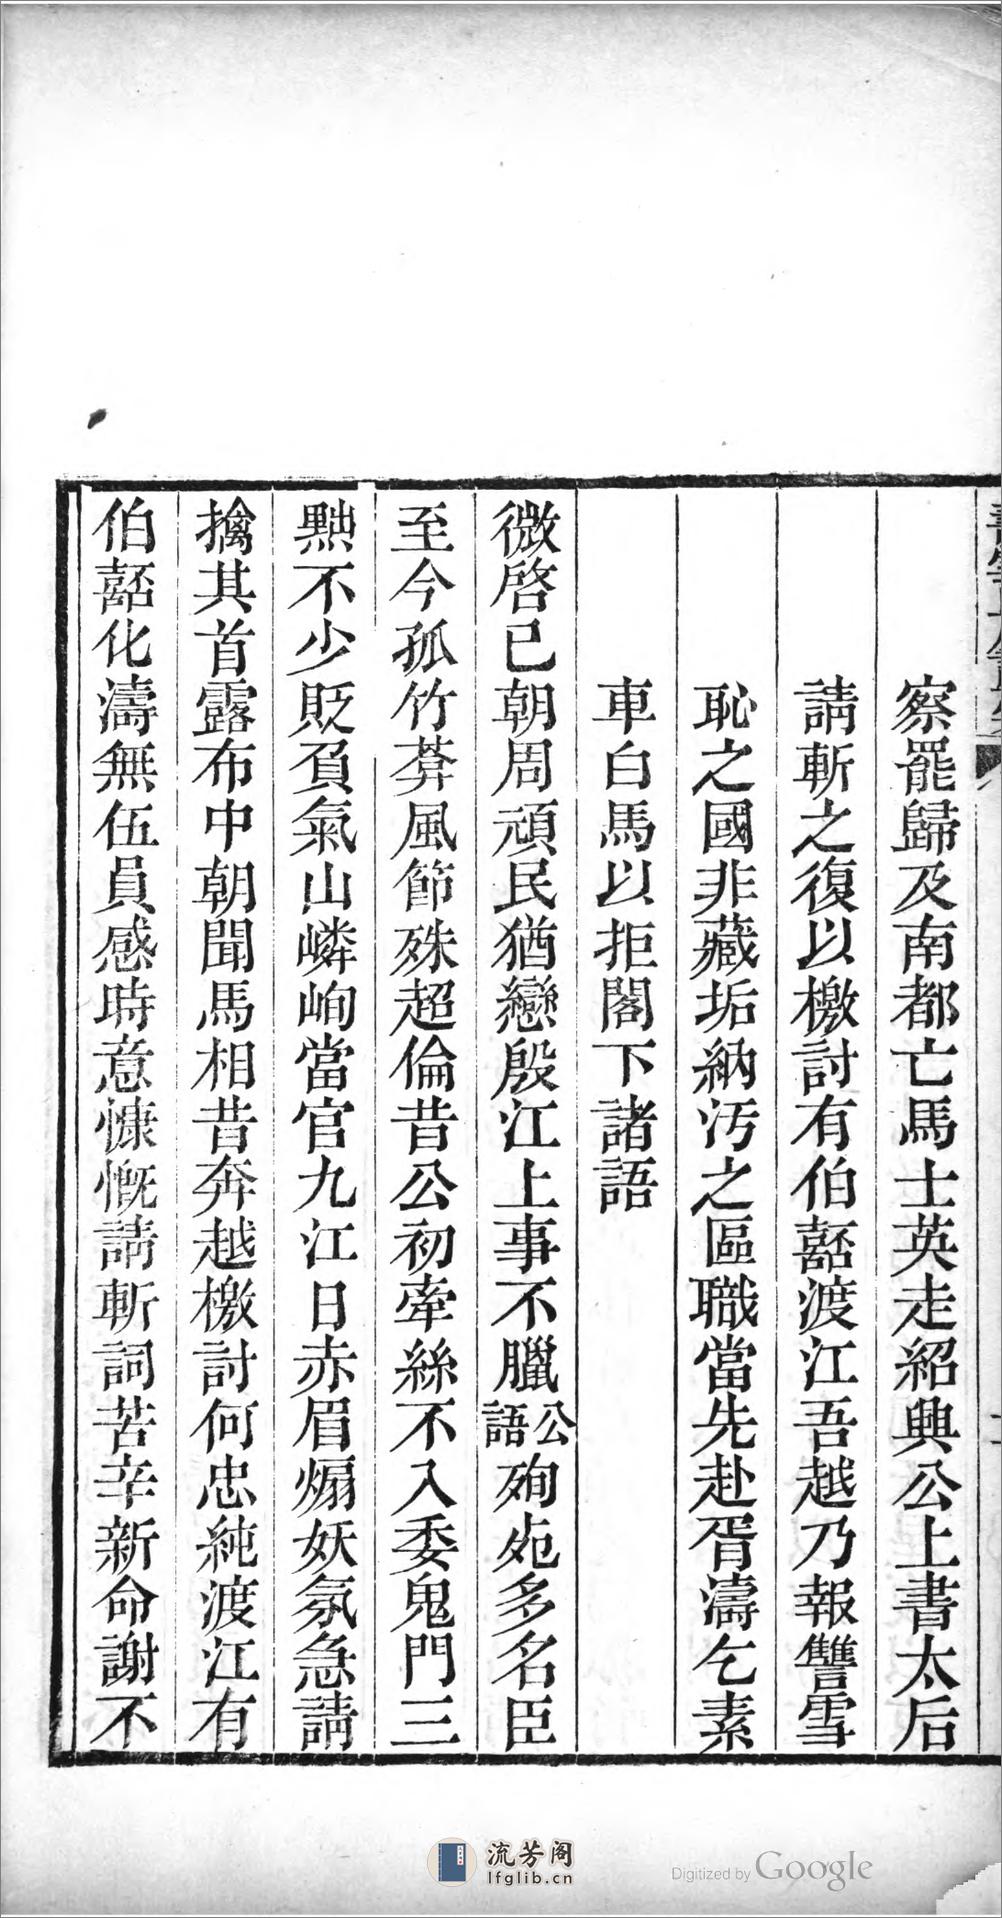 察罷歸及南都亡馬士英走紹興公上書太后
請斬之復以檄討有伯嚭渡江吾越乃報讐雪
恥之國非藏垢納汚之區職當先赴胥濤乞素
車白馬以拒閣下諸語
微啓已朝周頑民猶戀殷江上事不臘公語殉處多名臣
至今孤竹莽風節殊超倫昔公初牽絲不入委鬼門三
黜不少貶負氣山嶙峋當官九江日赤眉煽妖氛急請
擒其首露布中朝聞馬相昔奔越檄討何忠純渡江有
伯嚭化濤無伍員感時意慷慨請斬詞苦辛新命謝不
流芳阁
lfglib.cn
Digitized by Google